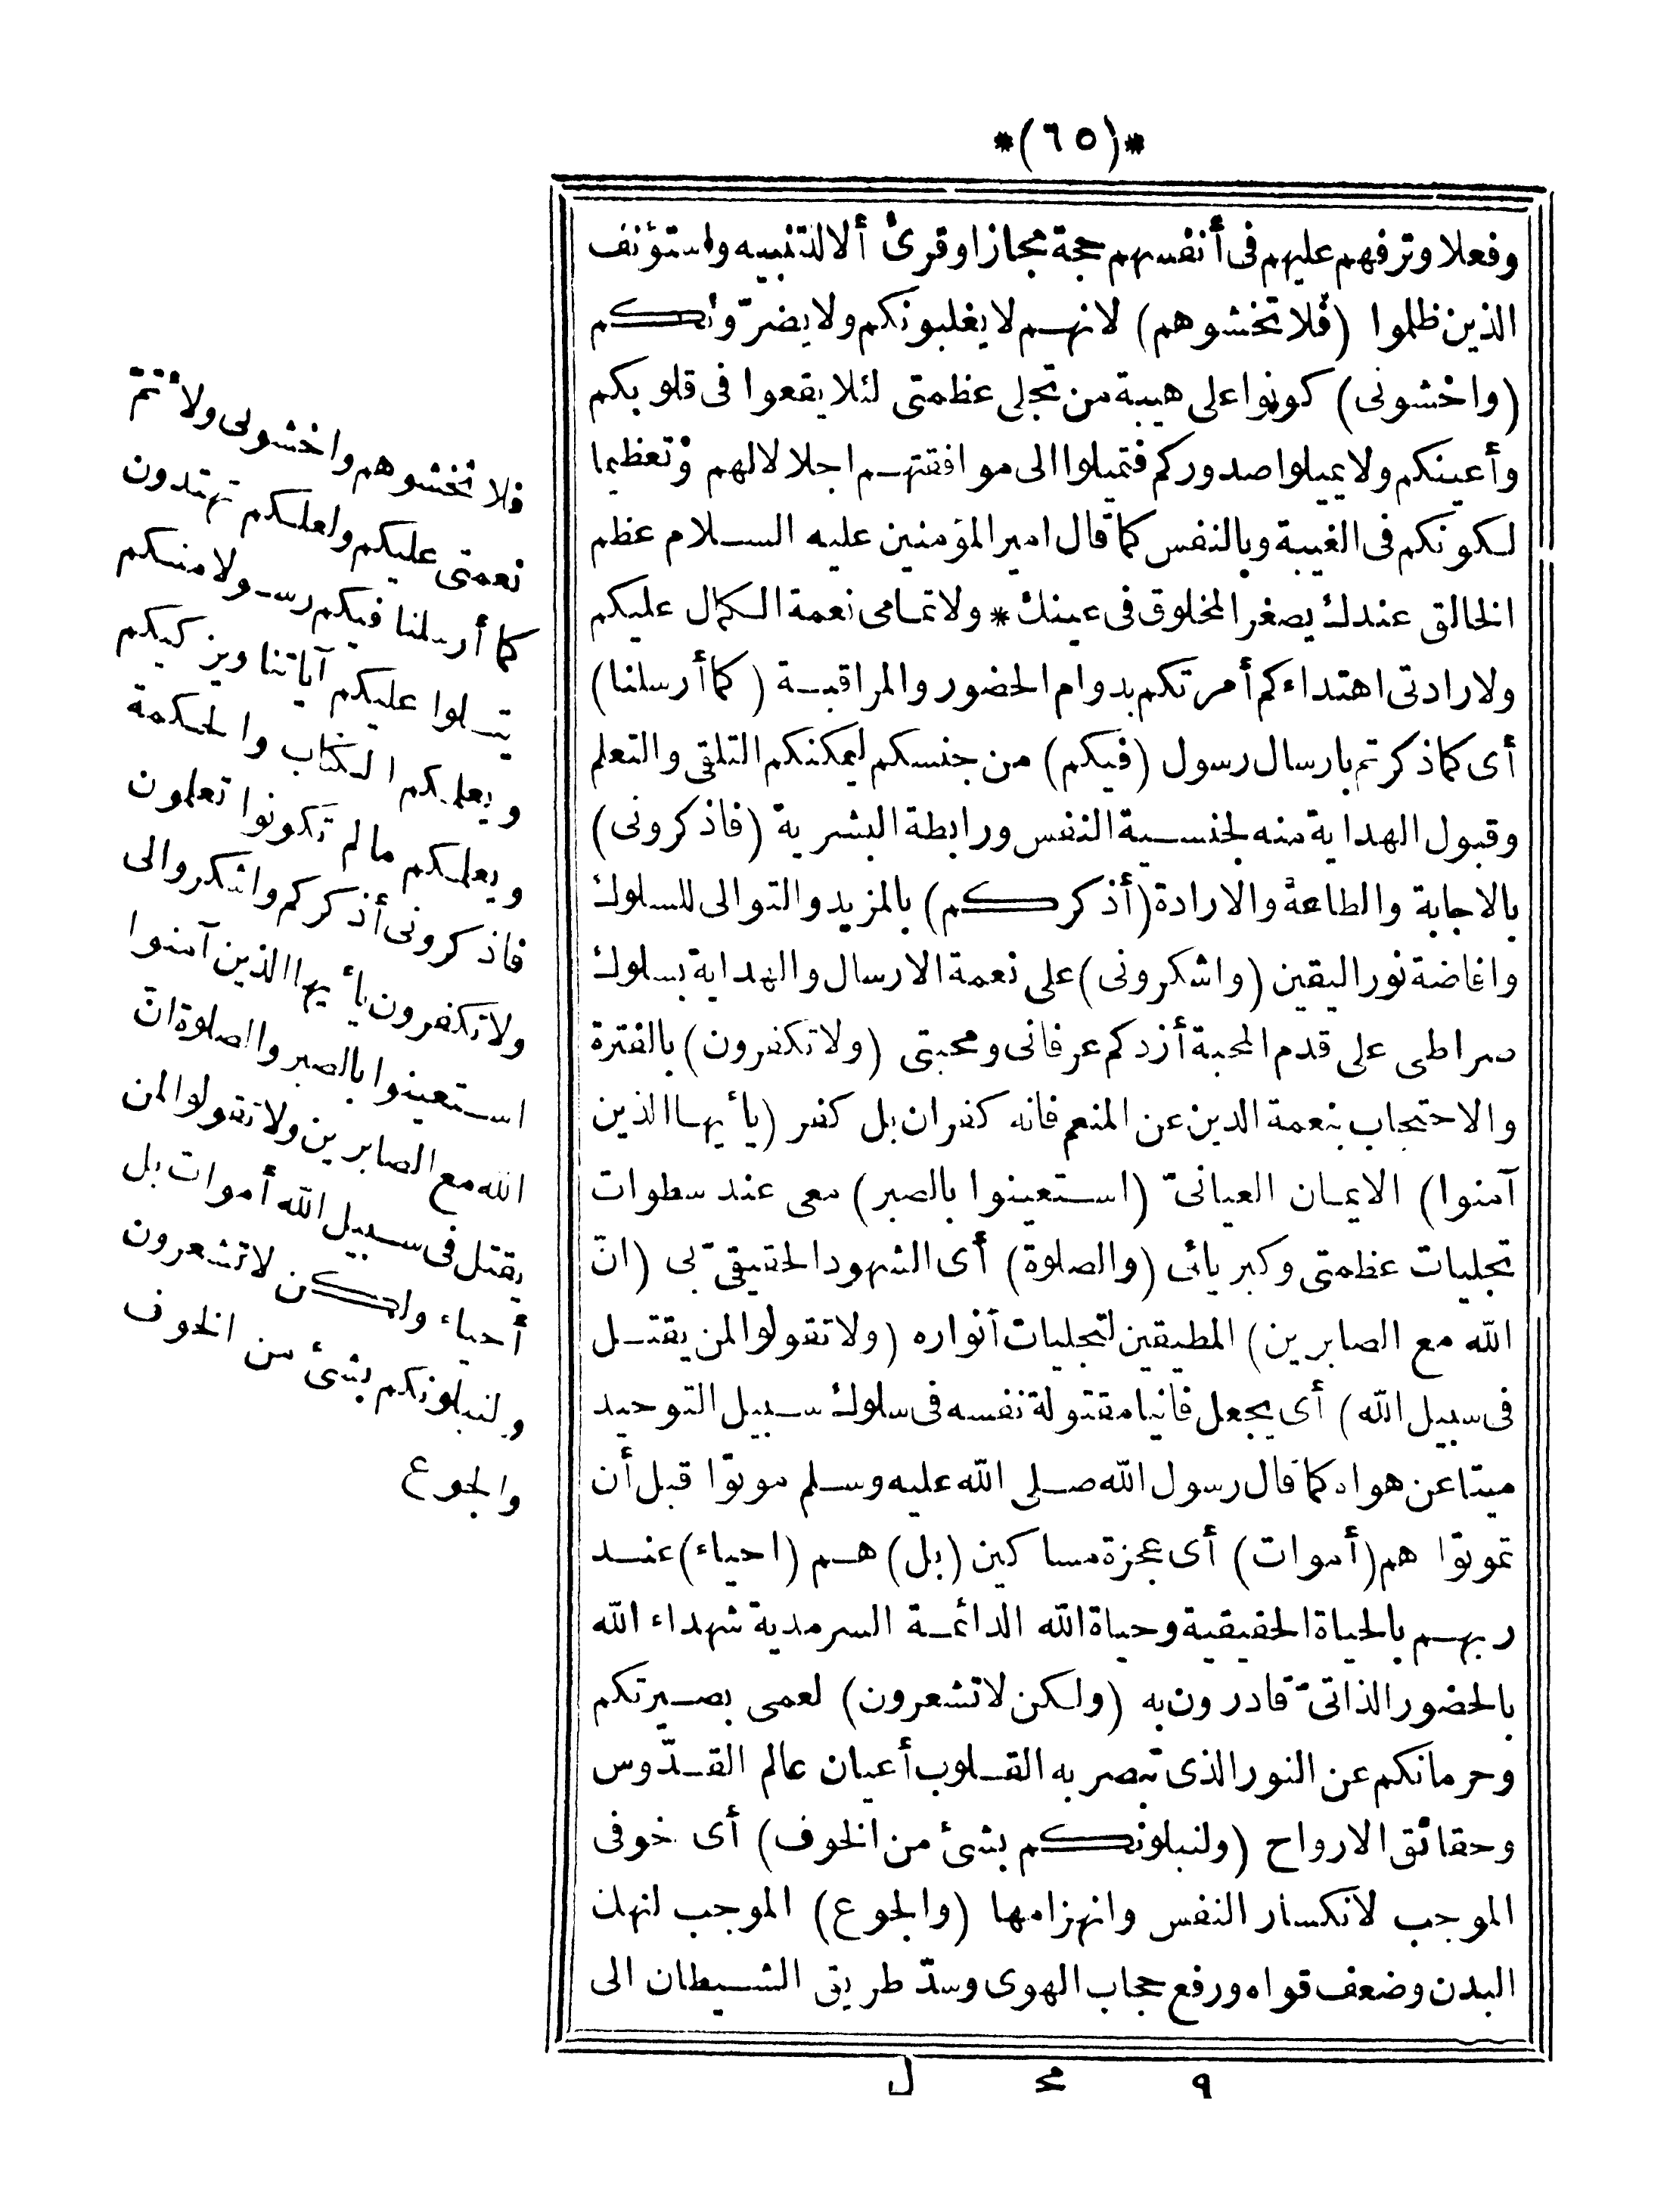 *(٦٥)*
وفعلا وترفهم عليهم فى أنفسهم حجة مجازا وقرئ ألا للتنبيه واستؤنف
الذين ظلموا (فلا تخشوهم) لانهم لا يغلبونكم ولا يضرّونكم
(واخشونى) كونوا على هيبة من تجلى عظمتى لئلا يقعوا فى قلوبكم
وأعينكم ولا يميلوا صدوركم فتميلوا الى موافقتهم اجلالا لهم وتعظيما
لكونكم فى الغيبة وبالنفس كما قال امير المؤمنين عليه السلام عظم
الخالق عندك يصغر المخلوق فى عينك * ولاتمامى نعمة الكمال عليكم
ولارادتى اهتداءكم أمرتكم بدوام الحضور والمراقبة (كما أرسلنا)
أى كما ذكرتم بارسال رسول (فيكم) من جنسكم ليمكنكم التلقى والتعلم
وقبول الهداية منه لجنسية النفس ورابطة البشرية (فاذكرونى)
بالاجابة والطاعة والارادة (أذكركم) بالمزيد والتوالى للسلوك
وافاضة نور اليقين (واشكرونى) على نعمة الارسال والهداية بسلوك
صراطى على قدم المحبة أزدكم عرفانى ومحبتى (ولا تكفرون) بالفترة
والاحتجاب بنعمة الدين عن المنعم فانه كفران بل كفر (يأيها الذين
آمنوا) الايمان العيانىّ (استعينوا بالصبر) معى عند سطوات
تجليات عظمتى وكبريائى (والصلوة) أى الشهود الحقيقىّ بى (انّ
الله مع الصابرين) المطيقين لتجليات أنواره (ولا تقولوا لمن يقتل
فى سبيل الله) أى يجعل فانيا مقتولة نفسه فى سلوك سبيل التوحيد
ميتا عن هواه كما قال رسول الله صلى الله عليه وسلم موتوا قبل أن
تموتوا هم (أموات) أى عجزة مساكين (بل) هم (احياء) عند
ربهم بالحياة الحقيقية وحياة الله الدائمة السرمدية شهداء الله
بالحضور الذاتىّ قادرون به (ولكن لا تشعرون) لعمى بصيرتكم
وحرمانكم عن النور الذى تبصر به القلوب أعيان عالم القدّوس
وحقائق الارواح (ولنبلونكم بشئ من الخوف) أى خوفى
الموجب لانكسار النفس وانهزامها (والجوع) الموجب لنهك
البدن وضعف قواه ورفع حجاب الهوى وسدّ طريق الشيطان الى
فلا تخشوهم واخشونى ولأتمّ
نعمتى عليكم ولعلكم تهتدون
كما أرسلنا فيكم رسولا منكم
يتلوا عليكم آياتنا ويزكيكم
ويعلمكم الكتاب والحكمة
ويعلمكم ما لم تكونوا تعلمون
فاذكرونى أذكركم واشكروا لى
ولا تكفرون يأيها الذين آمنوا
استعينوا بالصبر والصلوة انّ
الله مع الصابرين ولا تقولوا لمن
يقتل فى سبيل الله أموات بل
أحياء ولكن لا تشعرون
ولنبلونكم بشئ من الخوف
والجوع
٩ مح ل